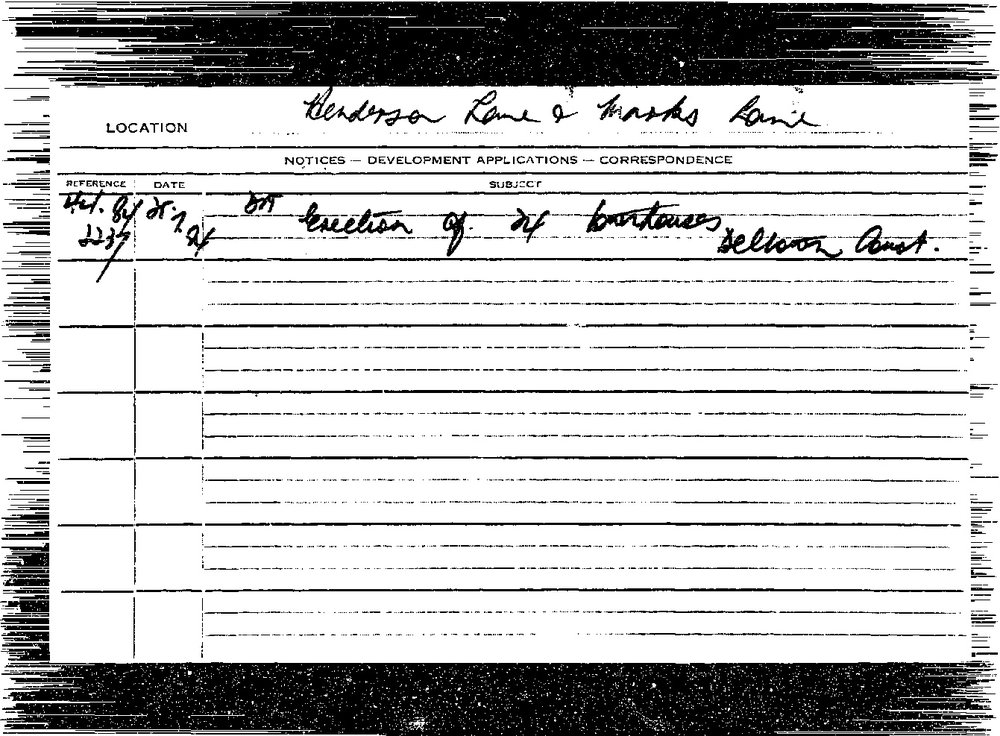 LOCATION Henderson Lane & Marks Lane
NOTICES — DEVELOPMENT APPLICATIONS — CORRESPONDENCE
REFERENCE DATE SUBJECT
84 DA Erection of 24 townhouses
2237 84 Const.